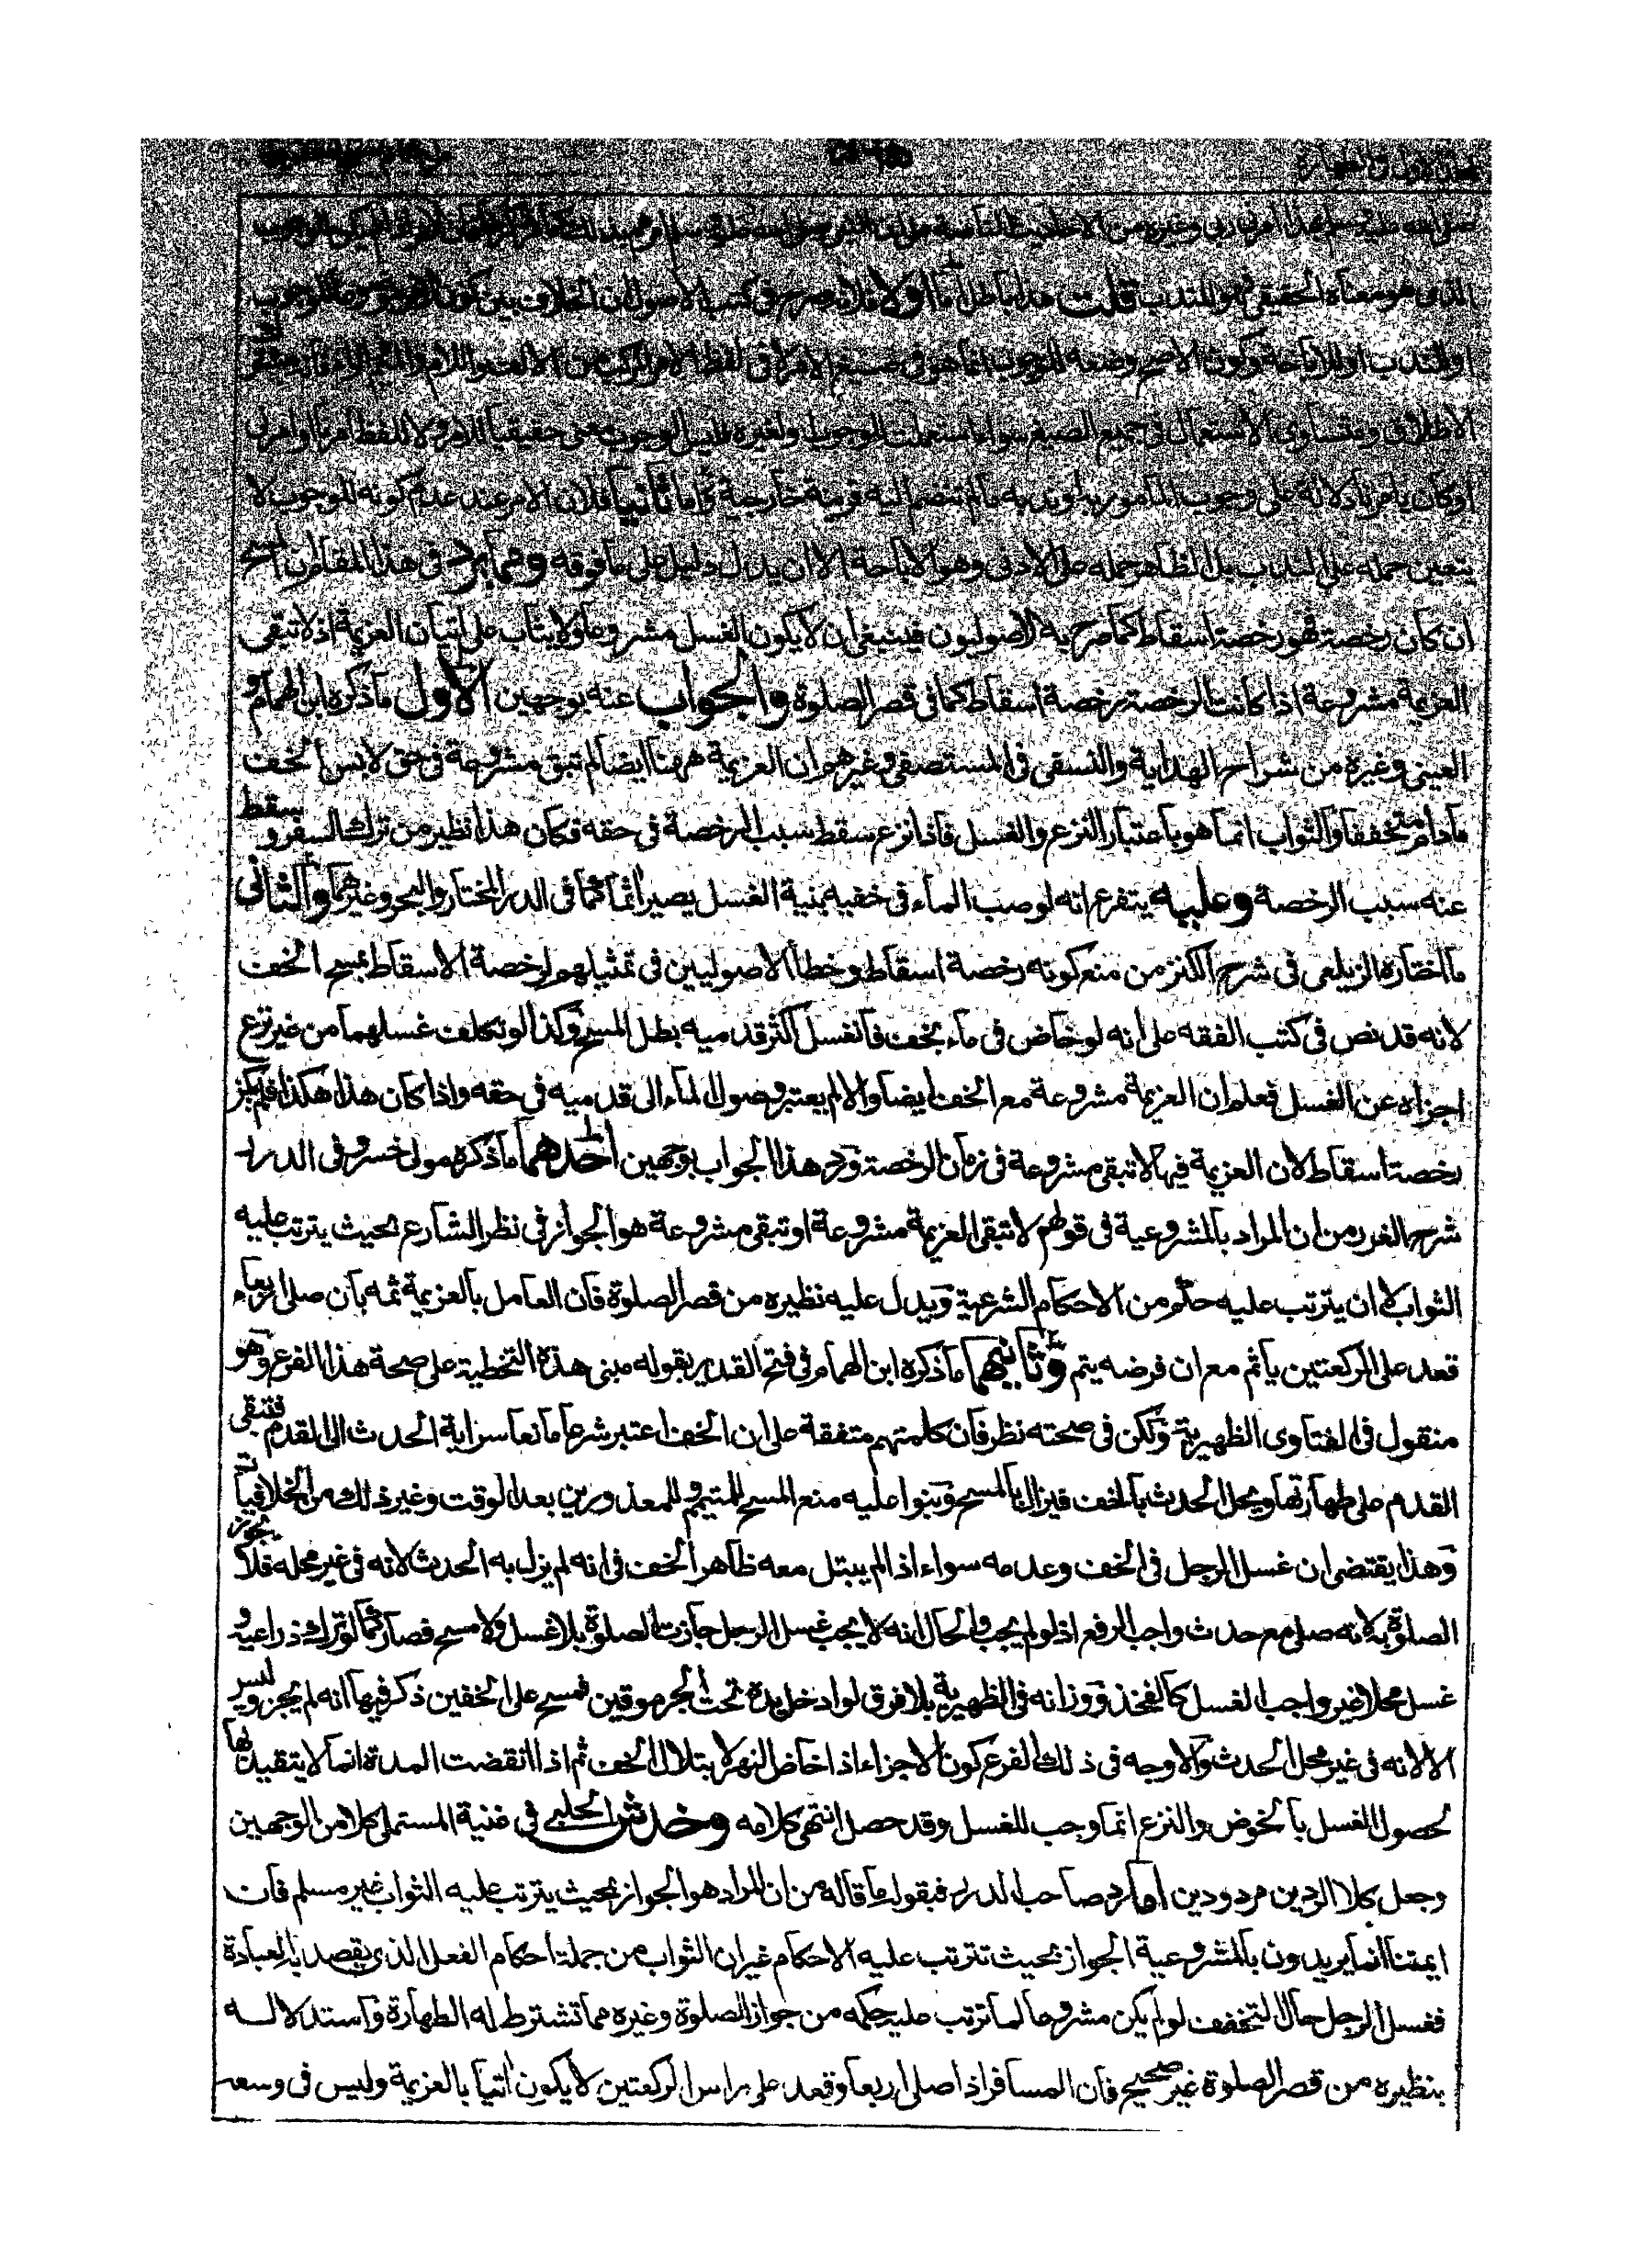 الذى هو معناه الحقيقى فهو للندب قلت هذا باطل اما اولا فلانه صرح فى كتب الاصول ان الخلاف بين كون الامر
او للندب او للاباحة وكون الاصح وضعه للوجوب انما هو فى صيغ الامر لا فى لفظ الامر المركب من الالف واللام والميم والراء فانه
الاطلاق ومتساوى الاستعمال فى جميع الصيغ سواء استعملت للوجوب او لغيره فليس الوجوب معنى حقيقيا للامر ولا للفظ امرنا او امرنى
او كان يامرنا دلالة على وجوب المامور به مالم تنضم اليه قرينة خارجية واما ثانيا فلان الامر عند عدم كونه للوجوب لا
يتعين حمله على الندب بل الظاهر حمله على الادنى وهو الاباحة الا ان يدل دليل على ما فوقه ومما يرد فى هذا المقام ان المسح
ان كان رخصة فهو رخصة اسقاط كما صرح به الاصوليون فينبغى ان لا يكون الغسل مشروعا ولا يثاب على اتيان العزيمة اذ لا تبقى
العزيمة مشروعة اذا كانت الرخصة رخصة اسقاط كما فى قصر الصلوة والجواب عنه بوجهين الاول ما ذكره ابن الهمام و
العينى وغيره من شراح الهداية والنسفى فى المستصفى وغيرهم ان العزيمة ههنا ايضا لم تبق مشروعة فى حق لابس الخف
مادام متخففا والثواب انما هو باعتبار النزع والغسل فاذا نزع سقط سبب الرخصة فى حقه فكان هذا نظير من ترك السفر وسقط
عنه سبب الرخصة وعليه يتفرع انه لو صب الماء فى خفيه بنية الغسل يصير اثما كما فى الدر المختار والبحر وغيرهما والثانى
ما اختاره الزيلعى فى شرح الكنز من منع كونه رخصة اسقاط وخطأ الاصوليين فى تمثيلهم لرخصة الاسقاط بمسح الخف
لانه قد نص فى كتب الفقه على انه لو خاض فى ماء بخف فانغسل اكثر قدميه بطل المسح وكذا لو تكلف غسلهما من غير نزع
اجزاه عن الغسل فعلم ان العزيمة مشروعة مع الخف ايضا والا لم يعتبر وصول الماء الى قدميه فى حقه واذا كان هذا هكذا فلم يكن
رخصة اسقاط لان العزيمة فيها لا تبقى مشروعة فى زمان الرخصة ورد هذا الجواب بوجهين احدهما ما ذكره مولى خسرو فى الدرر
شرح الغرر من ان المراد بالمشروعية فى قولهم لا تبقى العزيمة مشروعة او تبقى مشروعة هو الجواز فى نظر الشارع بحيث يترتب عليه
الثواب لا ان يترتب عليه حكم من الاحكام الشرعية ويدل عليه نظيره من قصر الصلوة فان العامل بالعزيمة ثمه بان صلى اربعا و
قعد على الركعتين ياثم مع ان فرضه يتم وثانيهما ما ذكره ابن الهمام فى فتح القدير بقوله مبنى هذه التخطية على صحة هذا الفرع وهو
منقول فى الفتاوى الظهيرية ولكن فى صحته نظر فان كلمتهم متفقة على ان الخف اعتبر شرعا مانعا سراية الحدث الى القدم فتبقى
القدم على طهارتها ويحل الحدث بالخف فيزال بالمسح وبنوا عليه منع المسح للمتيمم وللمعذورين بعد الوقت وغير ذلك من الخلافيات
وهذا يقتضى ان غسل الرجل فى الخف وعدمه سواء اذا لم يبتل معه ظاهر الخف فى انه لم يزل به الحدث لانه فى غير محله فلا يجوز
الصلوة به لانه صلى مع حدث واجب الرفع اذ لو لم يجب والحال انه لا يجب غسل الرجل جازت الصلوة بلا غسل ولا مسح فصار كما لو ترك ذراعيه و
غسل محلا غير واجب الغسل كالفخذ ووزانه فى الظهيرية بلا فرق لو ادخل يده تحت الجرموقين فمسح على الخفين ذكر فيها انه لم يجز وليس
الا لانه فى غير محل الحدث والاوجه فى ذلك الفرع كون الاجزاء اذا خاض النهر لابتلال الخف ثم اذا انقضت المدة انما لا يتقيد بها
لحصول الغسل بالخوض والنزع انما وجب للغسل وقد حصل انتهى كلامه وخدش الحلبى فى غنية المستملى كلا من الوجهين
وجعل كلا الردين مردودين اما رد صاحب الدرر فبقوله ما قاله من ان المراد هو الجواز بحيث يترتب عليه الثواب غير مسلم فان
ايمتنا انما يريدون بالمشروعية الجواز بحيث تترتب عليه الاحكام غير ان الثواب من جملة احكام الفعل الذى يقصد به العبادة
فغسل الرجل حال التخفف لو لم يكن مشروعا لما ترتب عليه حكمه من جواز الصلوة وغيره مما تشترط له الطهارة واستدلاله
بنظيره من قصر الصلوة غير صحيح فان المسافر اذا صلى اربعا وقعد على راس الركعتين لا يكون اتيا بالعزيمة وليس فى وسعه